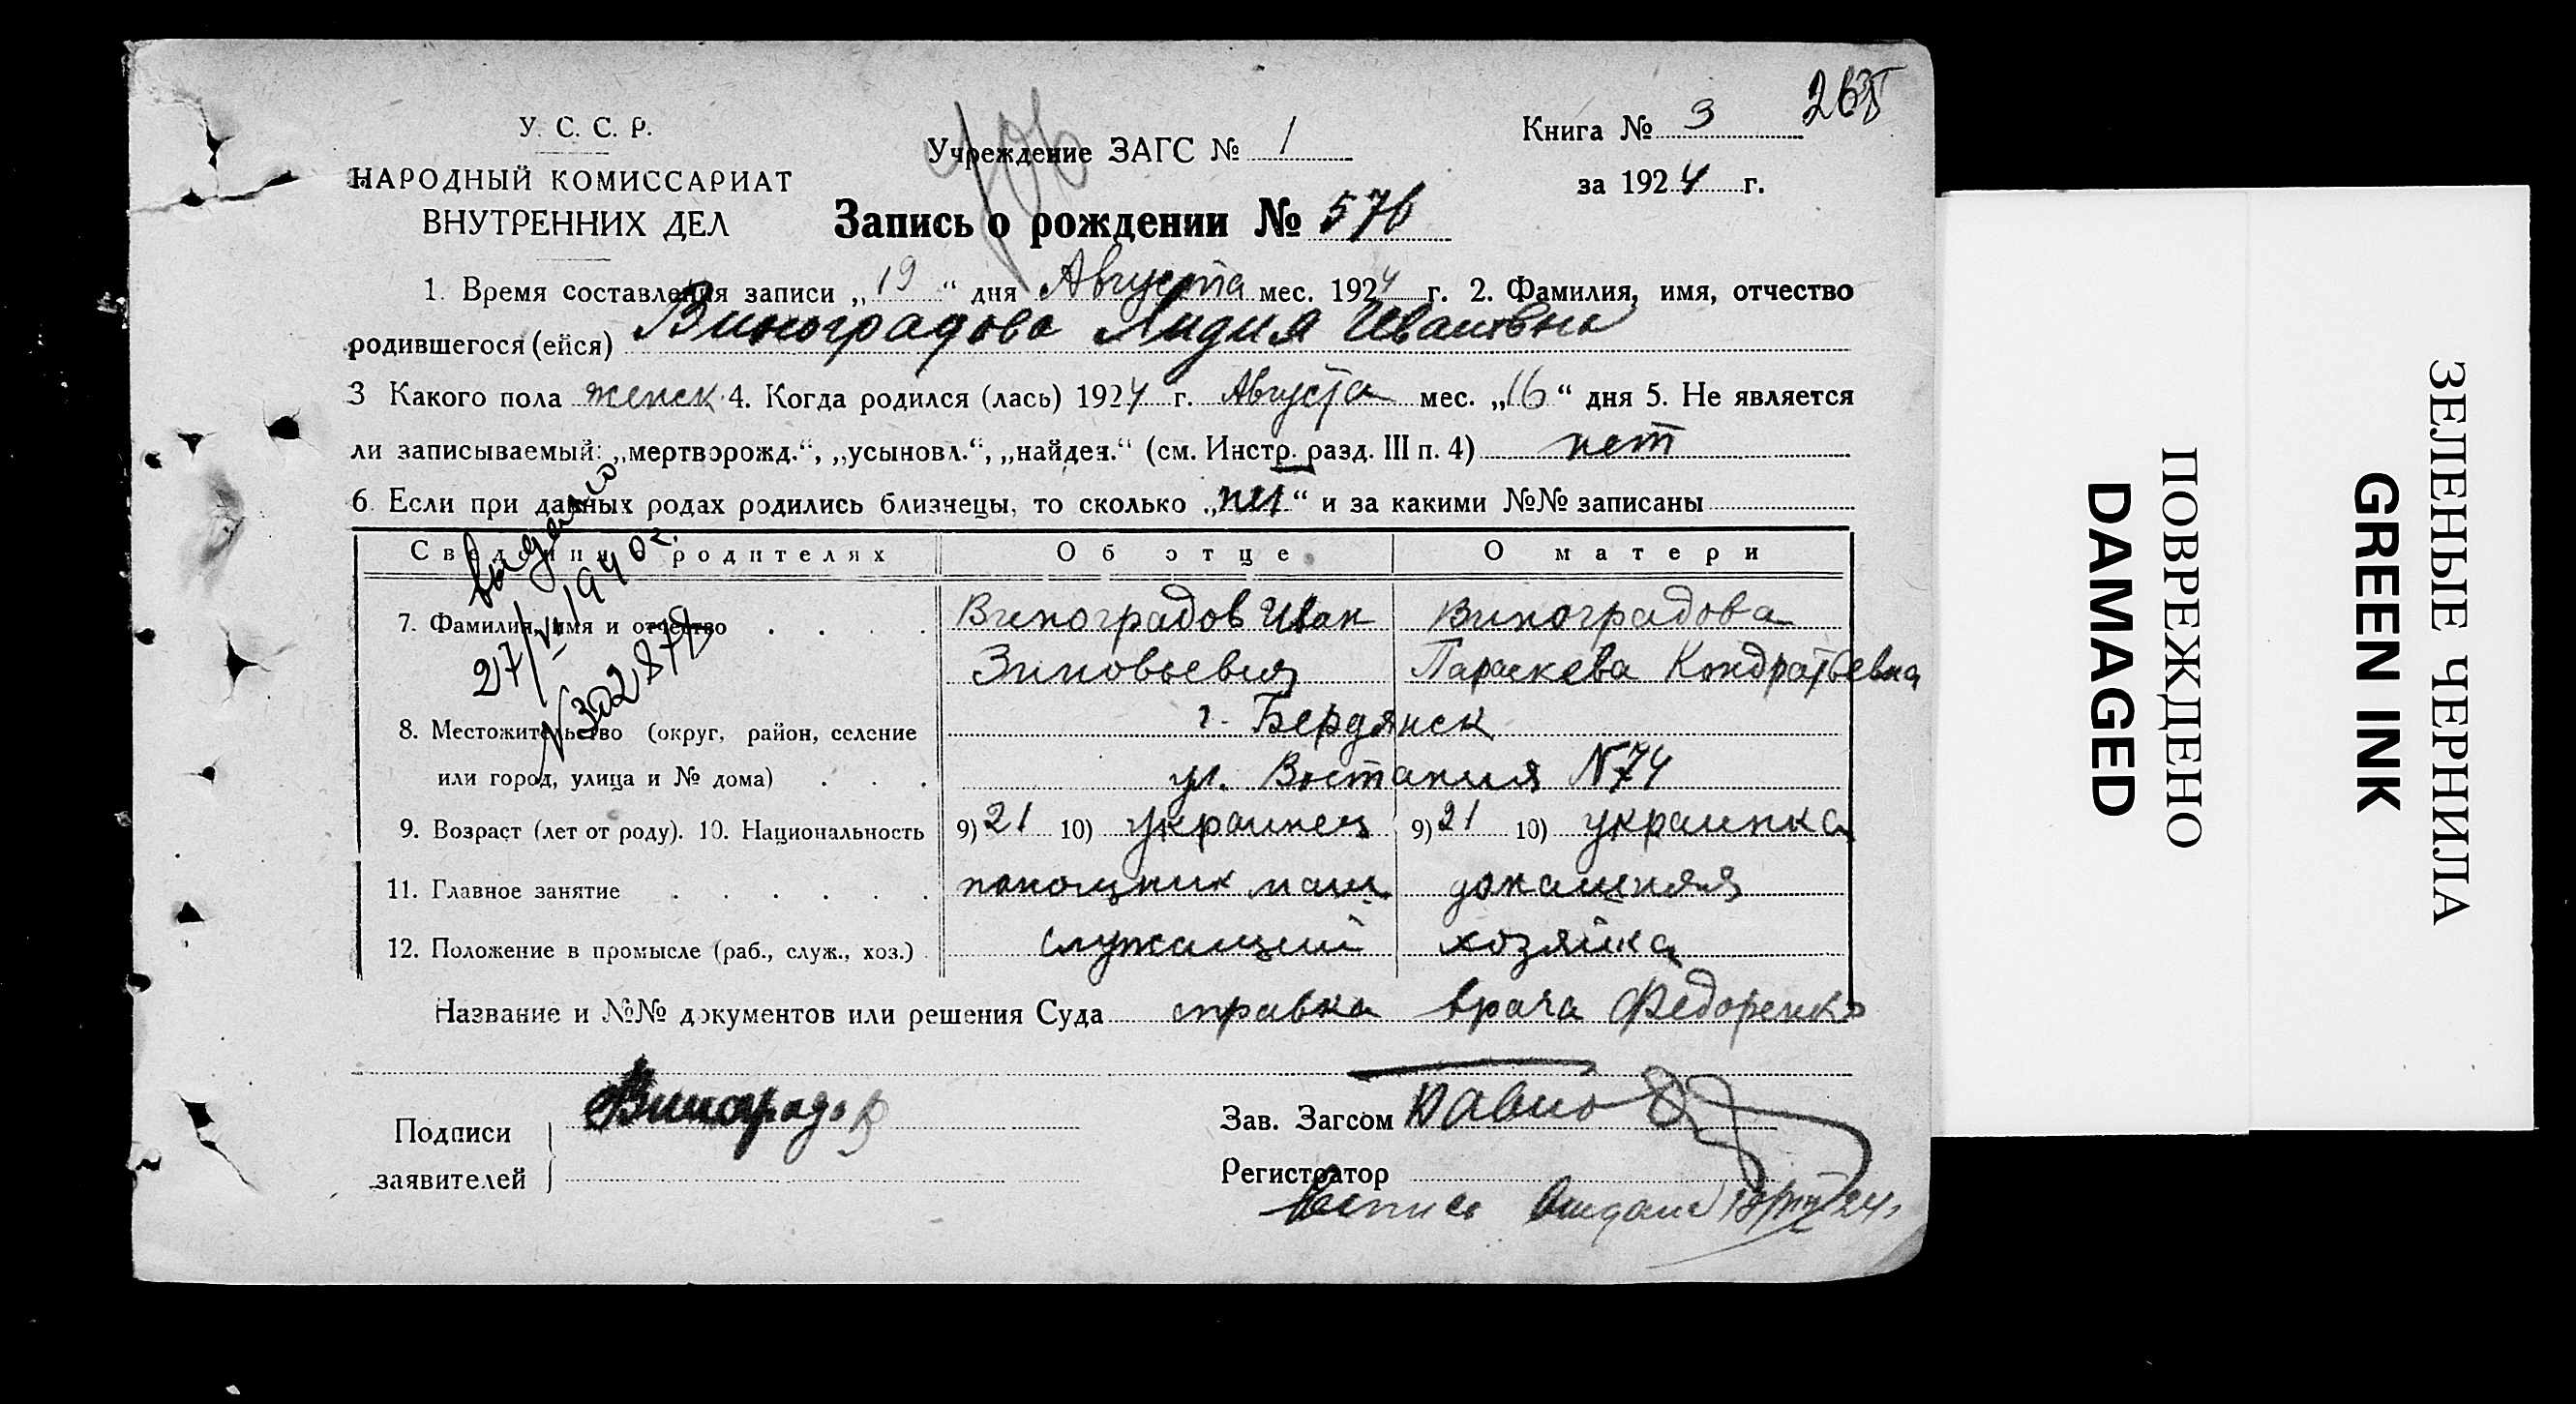 У. С. С. Р.
НАРОДНЫЙ КОМИССАРИАТ
ВНУТРЕННИХ ДЕЛ
Учреждение ЗАГС № 1
Книга № 3
за 1924 г.
Запись о рождении № 576
1. Время составления записи „19“ дня Августа мес. 1924 г. 2. Фамилия, имя, отчество
родившегося (ейся) Виноградова Лидия Ивановна
3 Какого пола женск. 4. Когда родился (лась) 1924 г. Августа мес. „16“ дня 5. Не является
ли записываемый: „мертворожд.“, „усыновл.“, „найден.“ (см. Инстр. разд. III п. 4) нет
6. Если при данных родах родились близнецы, то сколько „нет“ и за какими №№ записаны
Сведения о родителях Об отце О матери
7. Фамилия, имя и отчество Виноградов Иван Виноградова
Зиновьевич Параскева Кондратьевна
8. Местожительство (округ, район, селение г. Бердянск
или город, улица и № дома) ул. Востания №74
9. Возраст (лет от роду). 10. Национальность 9) 21 10) украинец 9) 21 10) украинка
11. Главное занятие помощник маш. домашняя
12. Положение в промысле (раб., служ., хоз.) служащий хозяйка
Название и №№ документов или решения Суда справка врача Федоренко
Подписи Виноградов
заявителей
Зав. Загсом
Регистратор
выдано
27/VI 1940 г.
ПОВРЕЖДЕНО
DAMAGED
ЗЕЛЕНЫЕ ЧЕРНИЛА
GREEN INK